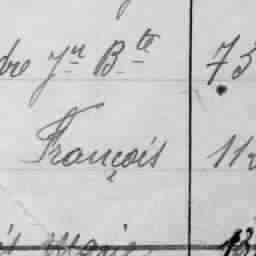 dre Jn Bte 73
François 112
Marie 13